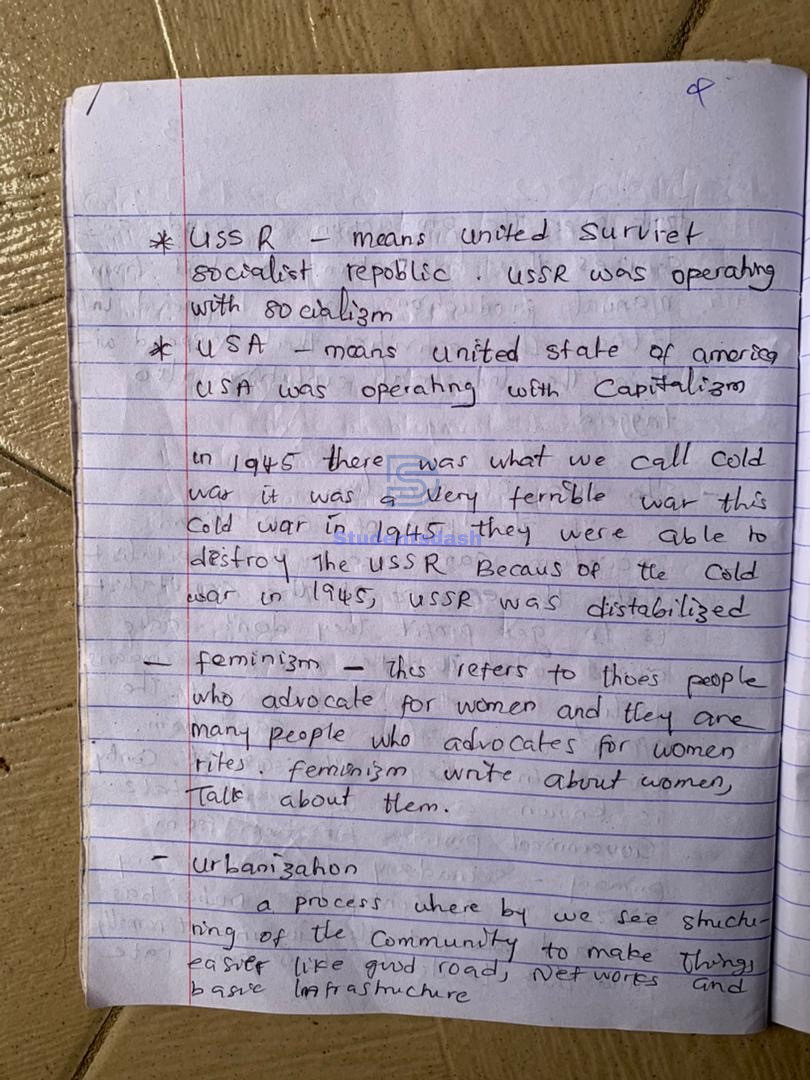 * USSR - means united Surviet
socialist repoblic. USSR was operating
with socializm
* USA - means united state of america
USA was operating with Capitalizm
in 1945 there was what we call cold
war it was a very terrible war this
Cold war in 1945 they were able to
Studentsdash
destroy The USSR Becaus of the Cold
war in 1945, USSR was distabilized
- feminizm - This refers to thoes people
who advocate for women and they are
many people who advocates for women
rites. feminizm write about women,
Talk about them.
- urbanization
a process where by we see structu-
ring of the Community to make Things
easier like good road, Networks and
basic Infrastructure